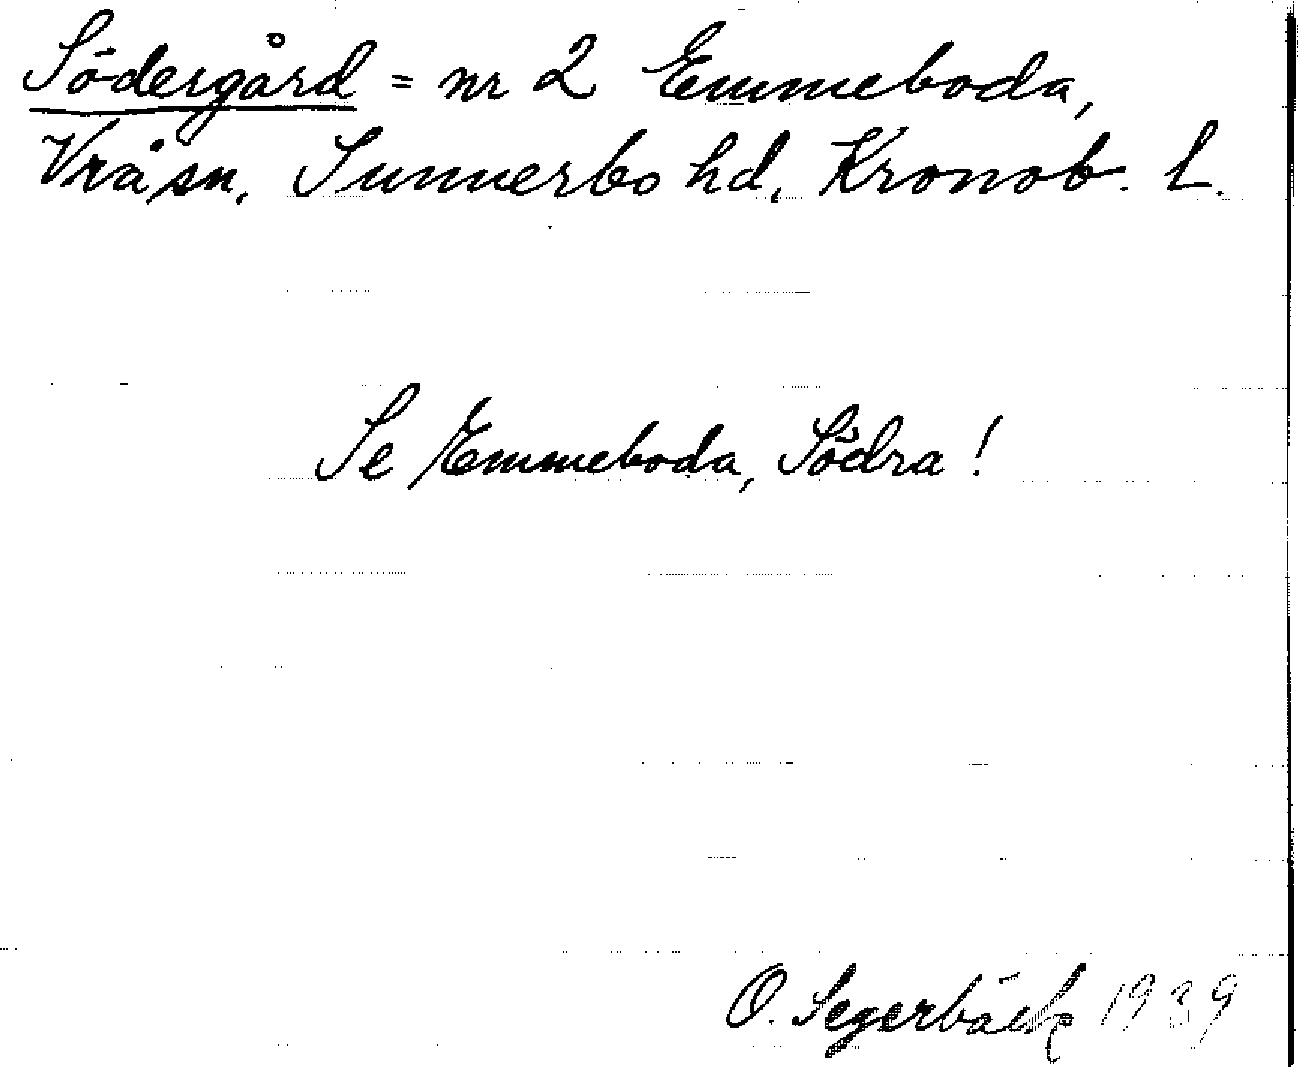 Södergård = nr 2 Emmeboda,
Vrå sn, Sunnerbo hd, Kronob. L.
Se Emmeboda, Södra!
O. Segerbäck 1939